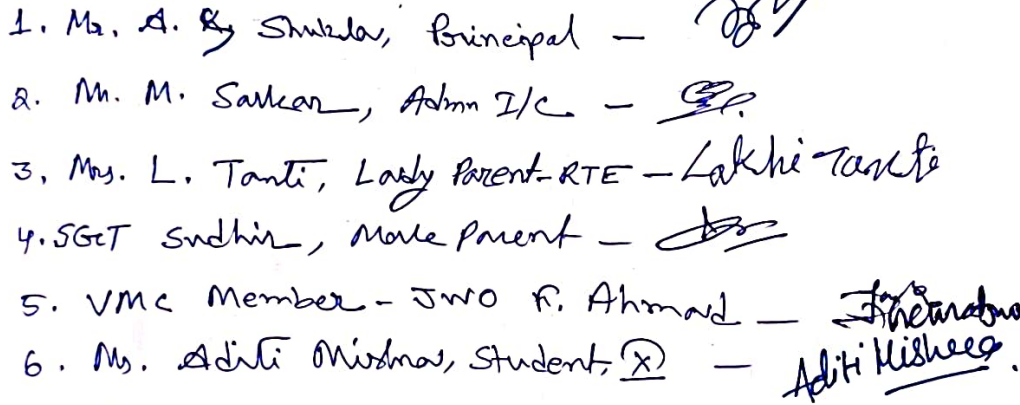 1. Mr. A. K. Shukla, Principal -
2. Mr. M. Sarkar, Admn I/C -
3, Mrs. L. Tanti, Lady Parent-RTE - Lakhi Tanti
4. SGT Sudhir, Male Parent -
5. VMC Member - JWO F. Ahmad -
6. Ms. Aditi Mishra, Student, X - Aditi Mishra.